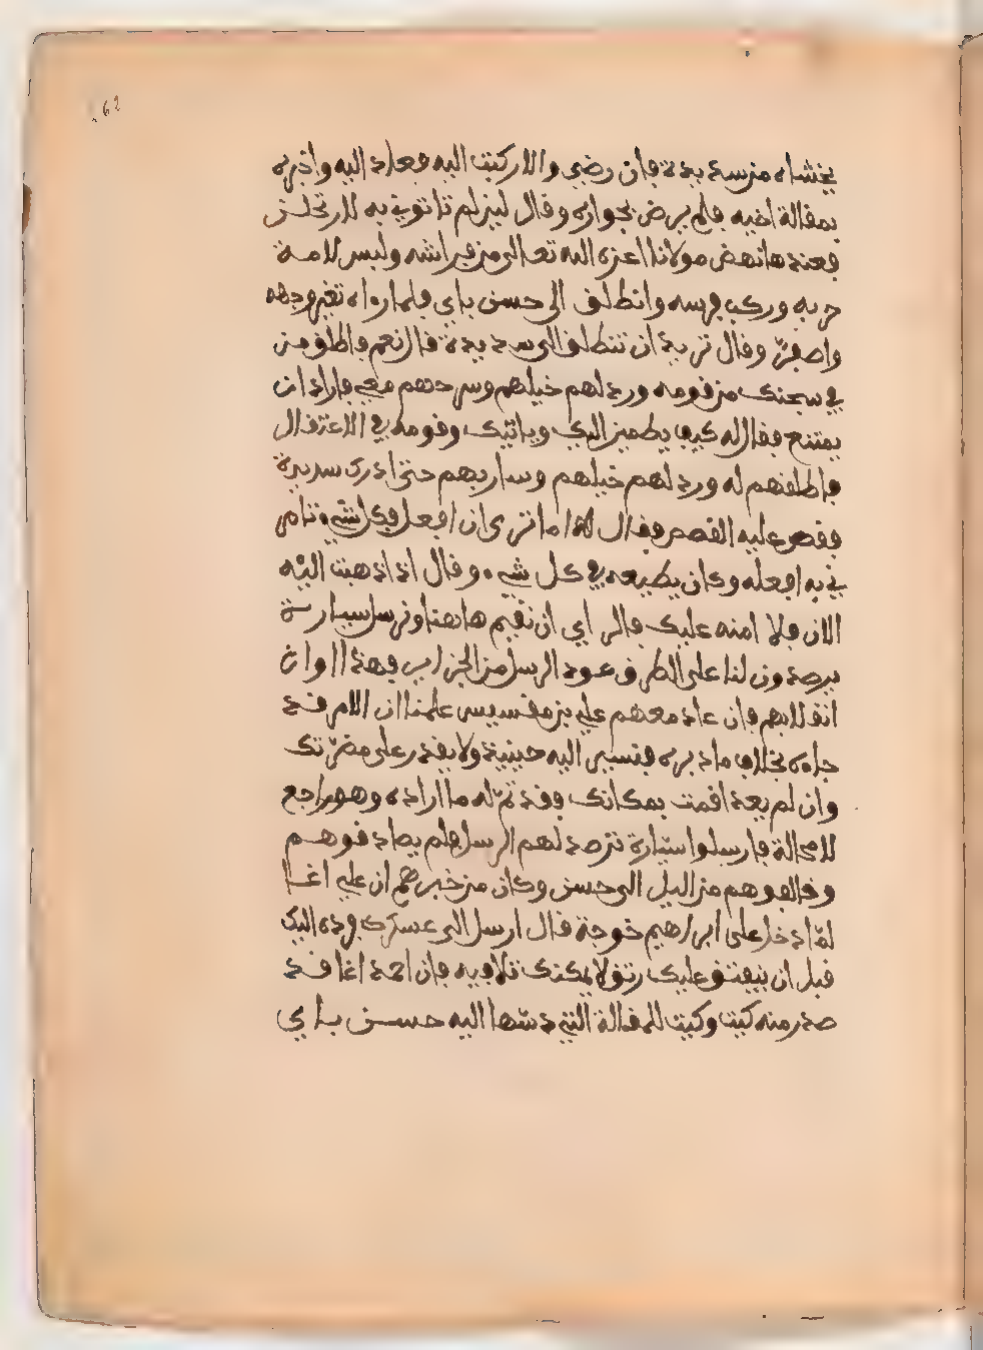 162
يخشاه من سد يدة فان رضي والا ركبت اليه فعاد اليه واخبره
بمقالة اخيه فلم يرض بجوابه وقال لين لم تاتوني به لارتحلن
فعندها نهض مولانا اعزه الله تعالى من فراشه ولبس لامة
حربه وركب فرسه وانطلق الى حسن باي فلما رواه تغير وجهه
واصفرّ وقال تريد ان تنطلق الى سديدة قال نعم فاطلق من
في سجنك من قومه ورد لهم خيلهم وسرحهم معي فاراد ان
يمتنع فقال له كيف يطمين اليك وياتيك وقومه في الاعتقال
فاطلقهم له ورد لهم خيلهم وسار بهم حتى ادرك سديرة
فقص عليه القصص فقال له اما ترى ان افعل فكل شي تامر
ني به افعله وكان يطيعه في كل شيء وقال اذا ذهبت اليه
الان فلا امنه عليك فالراي ان نقيم هاهنا ونرسل سيارة
يرصدون لنا على الطرق عود الرسل من الجزاير فهذا اوان
انقلابهم فان عاد معهم علي بن مقسيس علمنا ان الامر قد
جاه بخلاف ما دبره فنسير اليه حينية ولا يقدر على مضرّتك
وان لم يعد اقمت بمكانك فقد تمّ له ما اراده وهو راجع
لا محالة فارسلوا سيّارة تترصد لهم الرسل فلم يصادفوهم
وخالفوهم من اليل الى حسن وكان من خبرهم ان علي اغا
لمّا دخل على ابراهيم خوجة قال ارسل الى عسكرك ورده اليك
قبل ان ينفتق عليك رتق لا يمكنك تلافيه فان احمد اغا قد
صدر منه كيت وكيت للمقالة التي دسّها اليه حسن باي